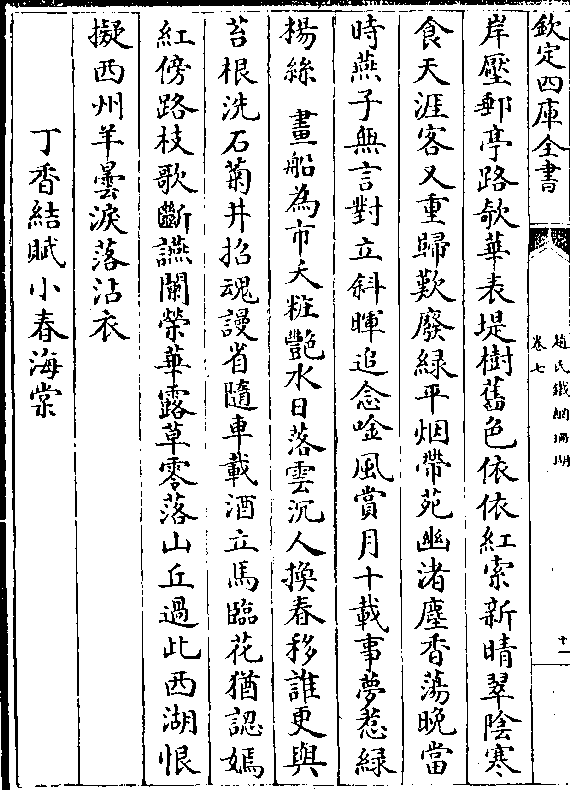 欽定四庫全書
趙氏鐵網珊瑚
卷七
十一
岸壓郵亭路欹華表堤樹舊色依依紅索新晴翠陰寒
食天涯客又重歸歎廢綠平烟帶苑幽渚塵香蕩晚當
時燕子無言對立斜暉追念唫風賞月十載事夢惹綠
楊絲 畫船為市夭粧艷水日落雲沉人換春移誰更與
苔根洗石菊井招魂謾省隨車載酒立馬臨花猶認嫣
紅傍路枝歌斷讌闌榮華露草零落山丘過此西湖恨
擬西州羊曇淚落沾衣
丁香結賦小春海棠